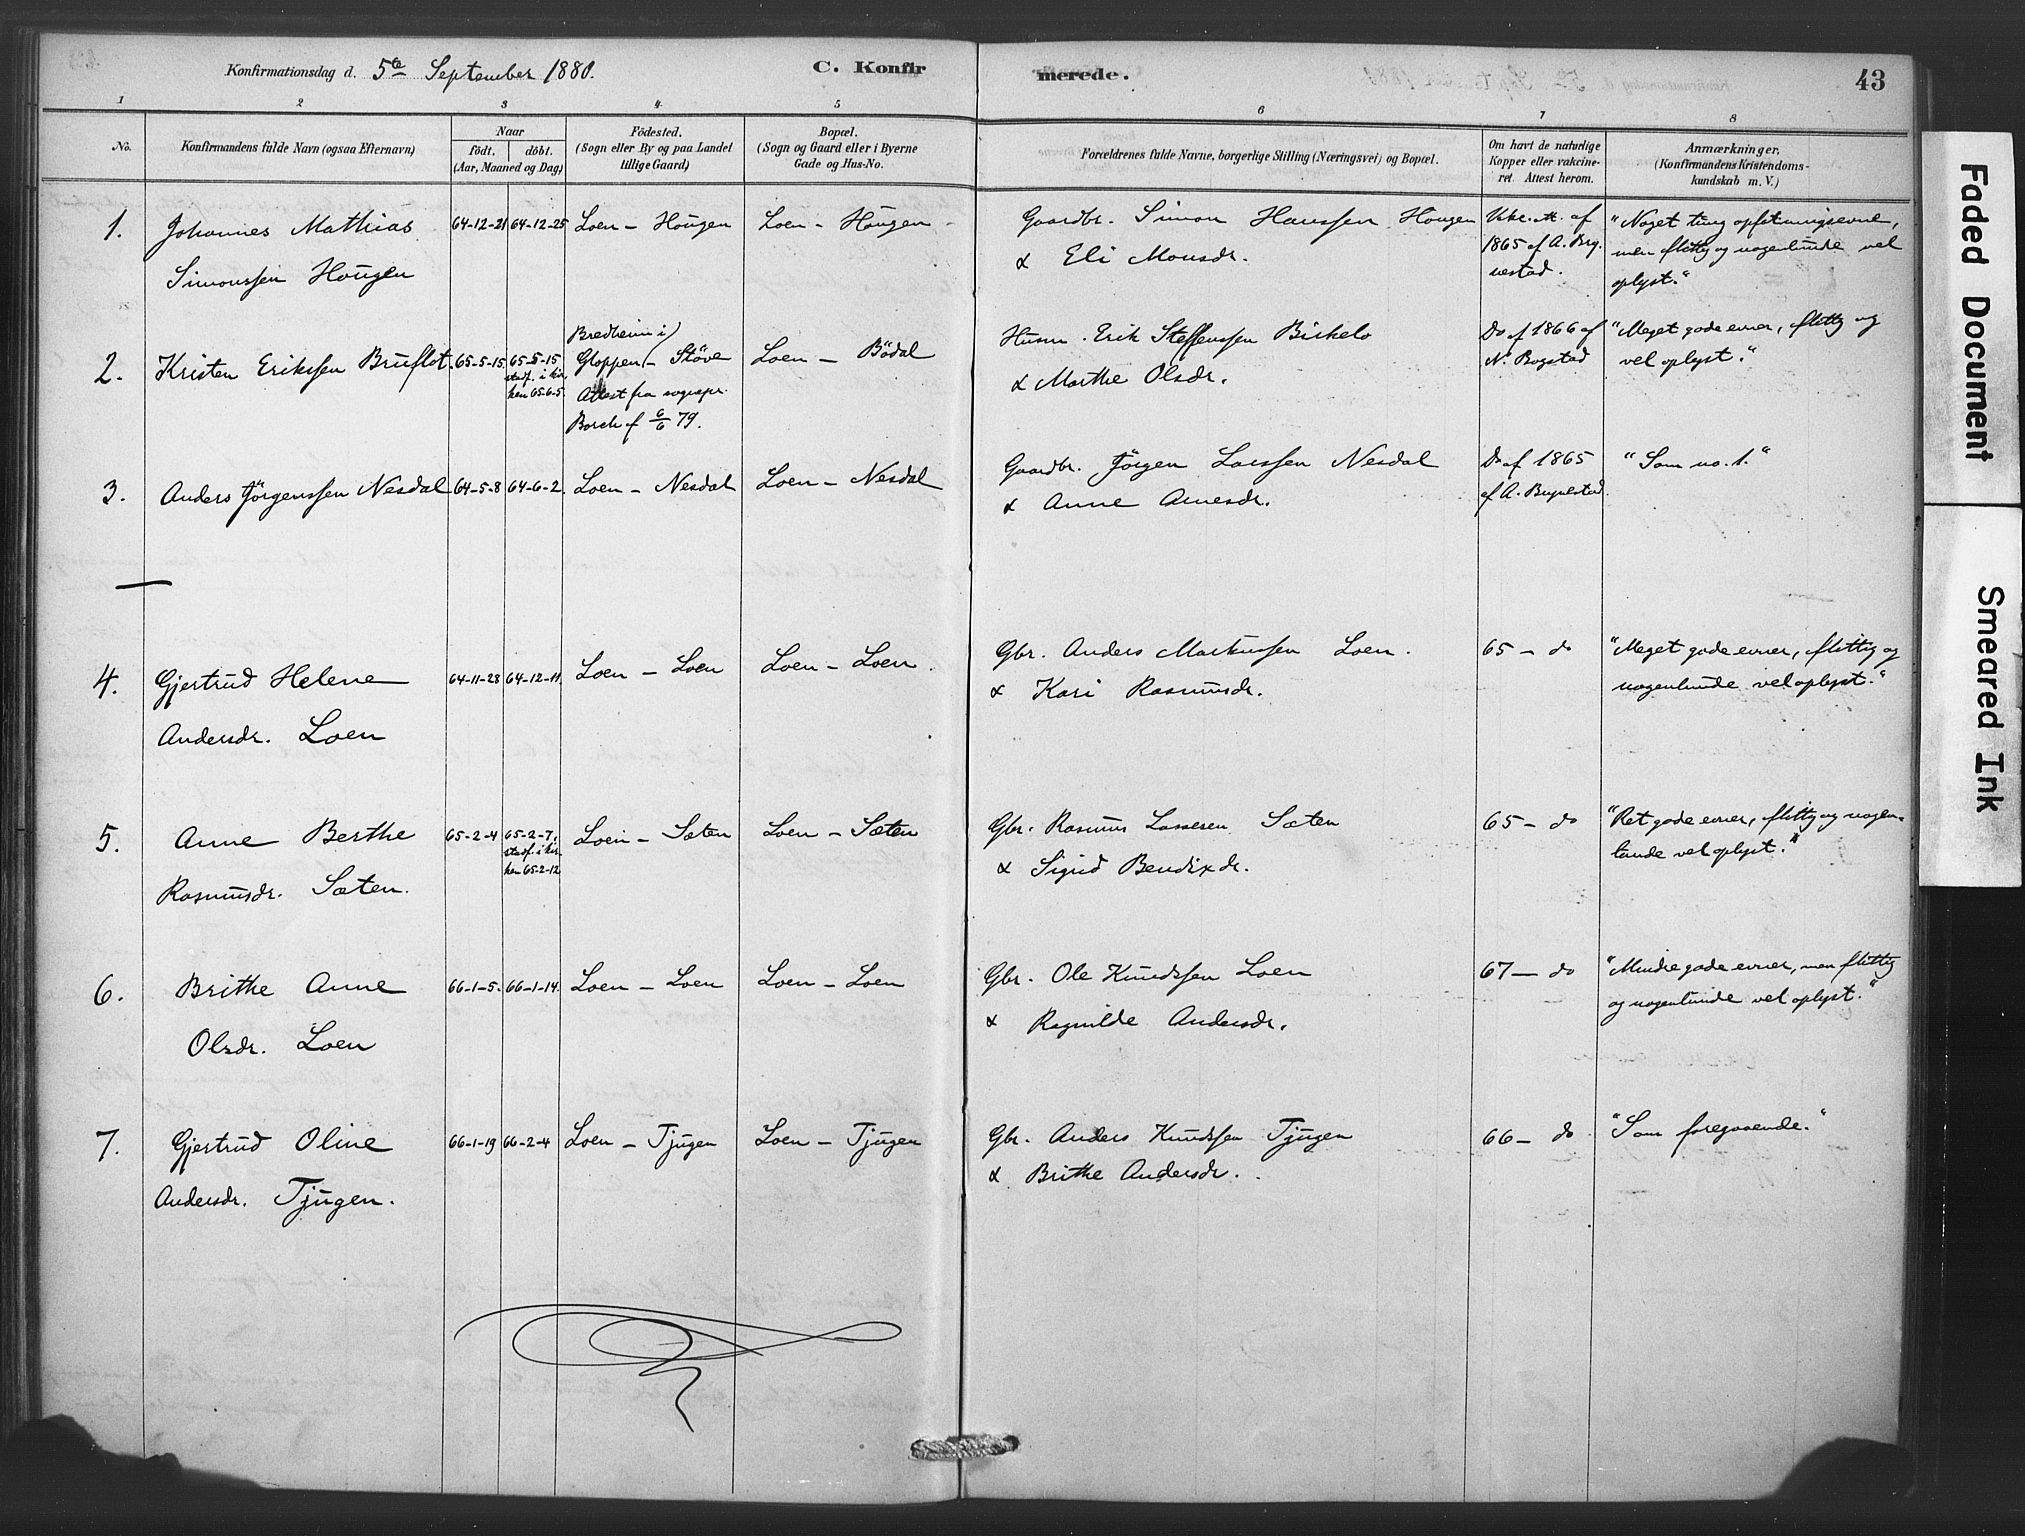 Konfirmationsdag d. 5te September 1880.
C. Konfirmerede.
43
1 2 3 4 5 6 7 8
No.
Konfirmandens fulde Navn (ogsaa Efternavn)
Naar
födt. döbt.
(Aar, Maaned og Dag)
Födested.
(Sogn eller By og paa Landet
tillige Gaard)
Bopæl.
(Sogn og Gaard eller i Byerne
Gade og Hus-No.
Forældrenes fulde Navne, borgerlige Stilling (Næringsvei) og Bopæl.
Om havt de naturlige
Kopper eller vakcine-
ret. Attest herom.
Anmærkninger.
(Konfirmandens Kristendoms-
kundskab m. V.)
1. Johannes Mathias 64-12-21 64-12-25 Loen - Hougen Loen - Hougen Gaardbr. Simon Hanssen Hougen Vakc. att. af "Noget tung opfatningsevne,
Simonssen Hougen & Eli Monsdr. 1865 af A. Bryg- men flittig og nogenlunde vel
nestad. oplyst."
2. Kristen Erikssen Bruflot. 65-5-15 65-5-15 Bredheim i Loen - Bödal Husm. Erik Steffenssen Birkelo Do af 1866 af "Meget gode evner, flittig og
stadf. i kir- Gloppen - Störe & Marthe Olsdr. N. Bogstad vel oplyst."
ken 65-6-5. Attest fra sognepr.
Borch af 6/6 79.
3. Anders Jörgenssen Nesdal 64-5-8 64-6-2. Loen - Nesdal Loen - Nesdal Gaardbr. Jörgen Larssen Nesdal Do af 1865 "Som no. 1."
& Anne Arnesdr. af A. Brynestad.
4. Gjertrud Helene 64-11-28 64-12-11. Loen - Loen Loen - Loen. Gbr. Anders Markussen Loen. 65 - do "Meget gode evner, flittig og
Andersdr. Loen & Kari Rasmusdr. nogenlunde vel oplyst."
5. Anne Berthe 65-2-4 65-2-7, Loen - Sæten Loen - Sæten Gbr. Rasmus Lassesen Sæten 65 - do "Ret gode evner, flittig og nogen-
stadf. i kir-
ken 65-2-12
Rasmusdr. Sæten. & Sigrid Bendixdr. lunde vel oplyst."
6. Brithe Anne 66-1-5. 66-1-14. Loen - Loen Loen - Loen Gbr. Ole Knudssen Loen 67 - do "Mindre gode evner, men flittig
Olsdr. Loen & Ragnilde Andersdr. og nogenlunde vel oplyst."
7. Gjertrud Oline 66-1-19 66-2-4 Loen - Tjugen Loen - Tjugen Gbr. Anders Knudssen Tjugen 66 - do "Som foregaaende."
Andersdr. Tjugen. & Brithe Andersdr.
Faded Document
Smeared Ink